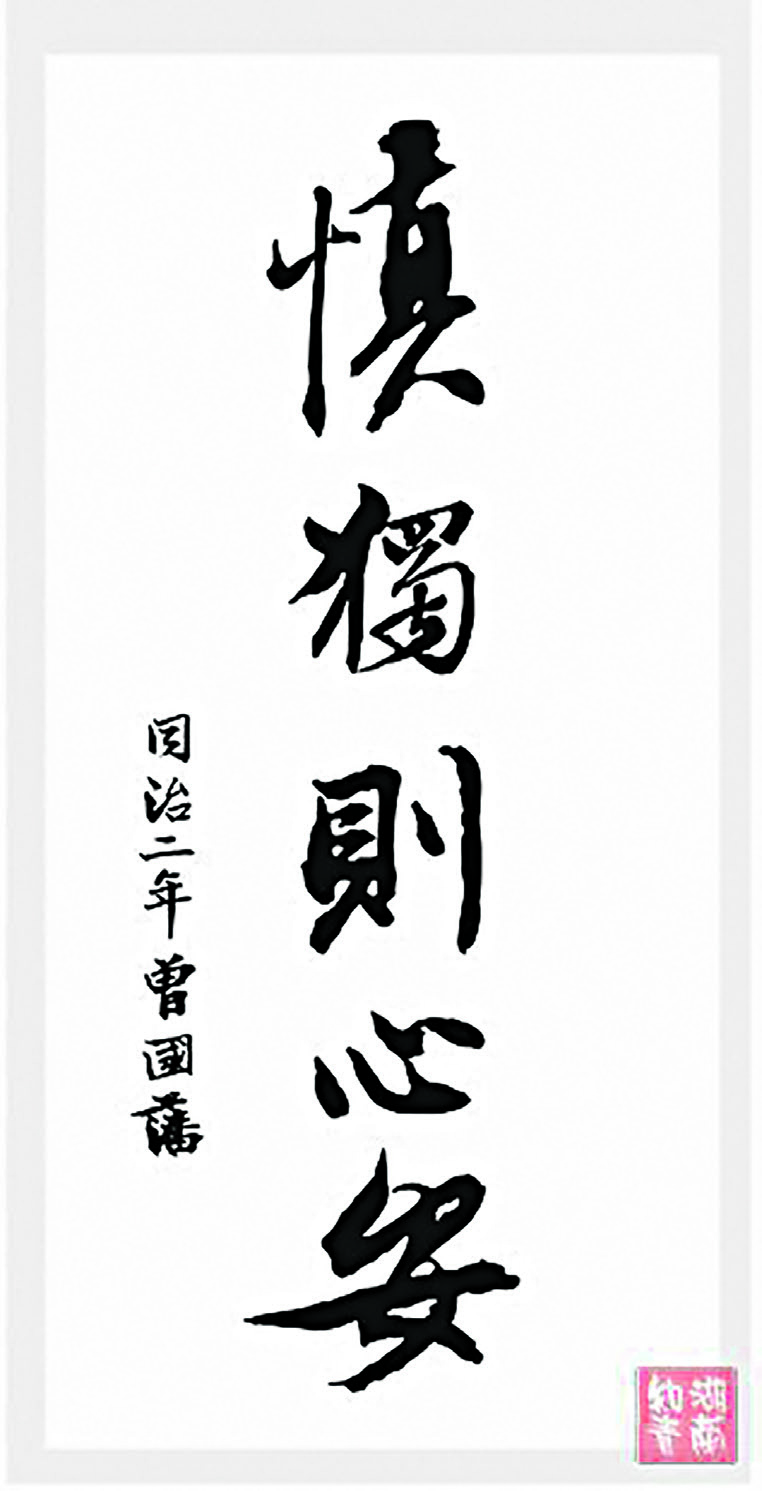 慎獨則心安
同治二年曾國藩
湖南